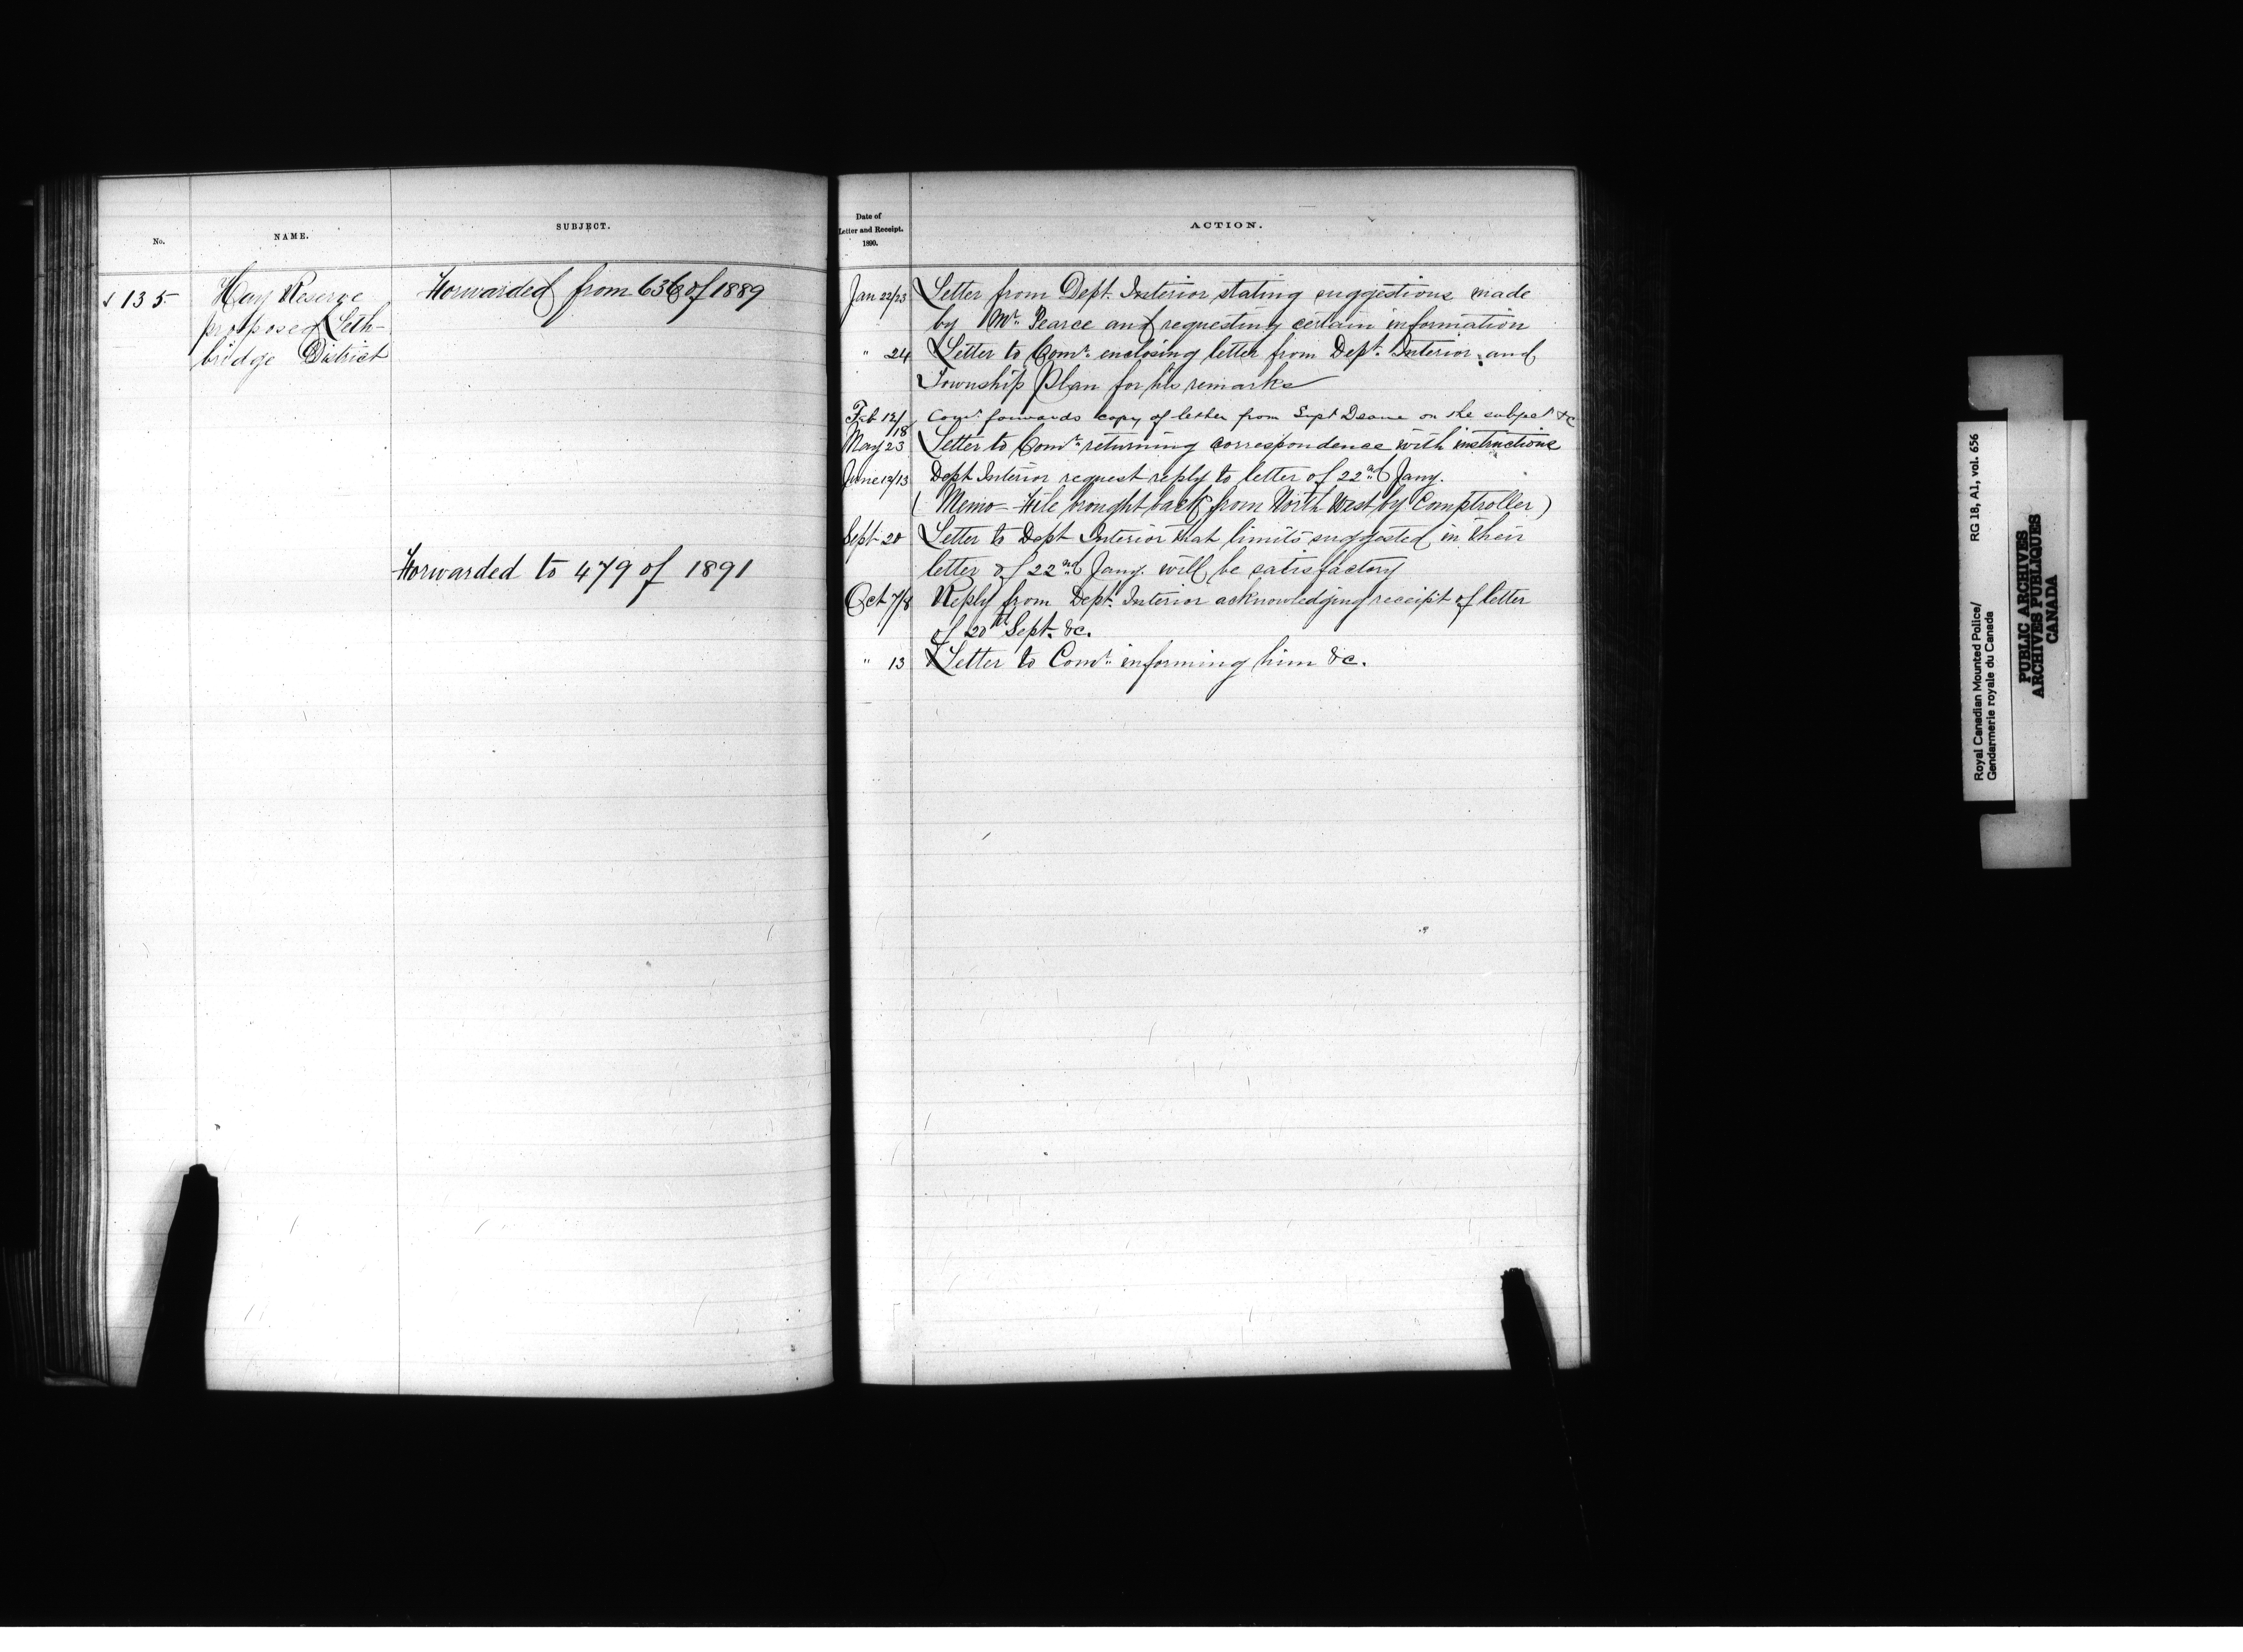 No.
NAME.
SUBJECT.
135
Hay Reserve
proposed Leth-
bridge District
Forwarded from 636 of 1889
Forwarded to 479 of 1891
Date of
Letter and Receipt.
1890.
ACTION.
Jan 22/23 Letter from Dept. Interior stating suggestions made
by Mr. Pearce and requesting certain information
" 24 Letter to Comr. enclosing letter from Dept. Interior and
Township Plan for his remarks
Feb 12/18 Comr. forwards copy of letter from Supt Deane on the subject &c
May 23 Letter to Comr. returning correspondence with instructions
June 12/13 Dept Interior request reply to letter of 22nd Jany.
(Memo - File brought back from North West by Comptroller)
Sept 20 Letter to Dept Interior that limits suggested in their
letter of 22nd Jany. will be satisfactory
Oct 7/8 Reply from Dept. Interior acknowledging receipt of letter
of 20th Sept. &c.
" 13 Letter to Comr. informing him &c.
Royal Canadian Mounted Police/ RG 18, A1, vol. 656
Gendarmerie royale du Canada
PUBLIC ARCHIVES
ARCHIVES PUBLIQUES
CANADA